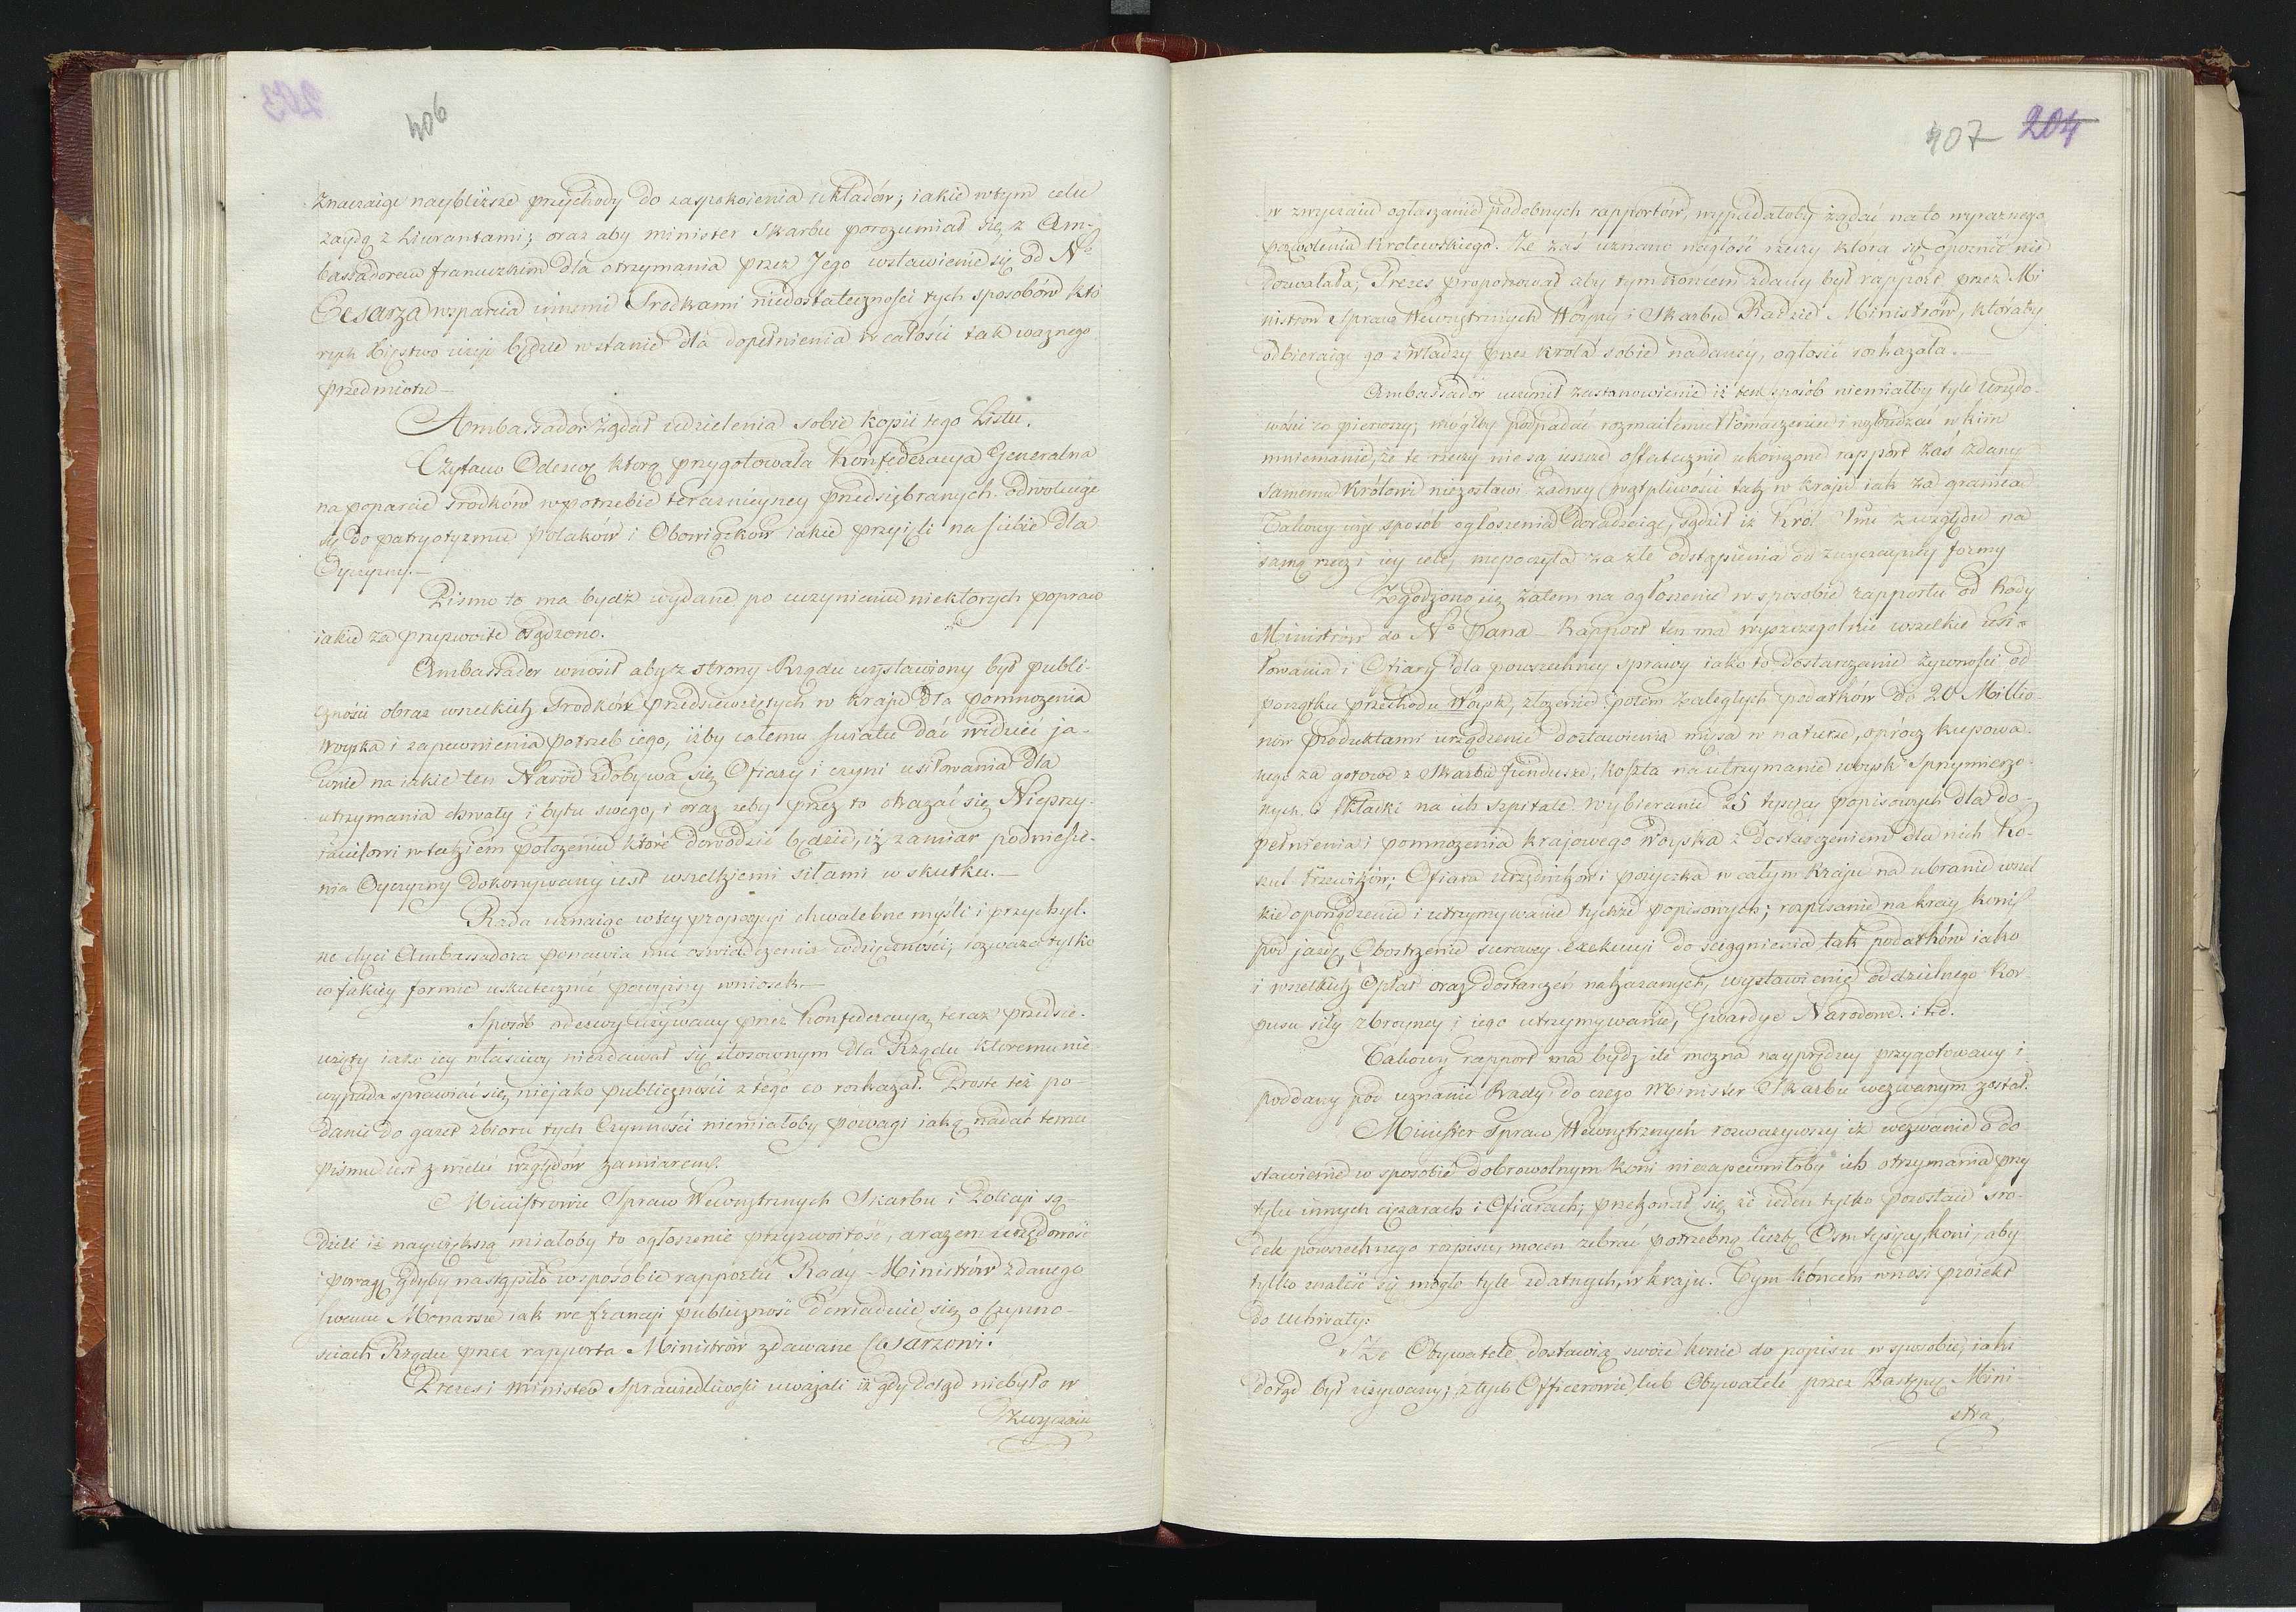 406
znaczaiąc naybliższe przychody do zaspokoienia układów; iakie w tym celu
zayda z Liwerantami; oraz aby minister Skarbu porozumiał się z Am-
bassadorem francuzkim dla otrzymania przez Jego wstawienie się od Nº
Cesarza wsparcia innemi Srodkami niedostateczności tych sposobów któ
rych Xięstwo użyć będzie wstanie dla dopełnienia w całości tak ważnego
przedmiotu —
Ambassador żądał udzielenia sobie kopii tego Listu.
Czytano Odezwę ktorą przygotowała Konfederacya Generalna
na poparcie srodków w potrzebie teraznieyszey przedsiębranych odwołuiąc
się do patryotyzmu Polaków i Obowiązków iakie przyięli na siebie dla
Oyczyzny. —
Pismo to ma bydź wydane po uczynieniu niektorych popraw
iakie za przyzwoite osądzono.
Ambassador wnosił aby z strony Rządu wystawiony był publi-
czności obraz wszelkich Srodków przedsiewziętych w kraju dla pomnożenia
Woyska i zapewnienia potrzeb iego, iżby całemu światu dać widzieć ja-
wnie na iakie ten Naród zdobywa się Ofiary i czyni usiłowania dla
utrzymania chwały i bytu swego, i oraz żeby przez to okazać się Nieprzy-
iacielowi w takiem położeniu które dowodzić będzie, iż zamiar podniesie-
nia Oyczyzny dokonywany iest wszelkiemi siłami w skutku. —
Rada uznaiąc w tey propozycyi chwalebne myśli i przychyl-
ne chęci Ambassadora ponawia mu oswiadczenia wdzięczności, rozważa tylko
w jakiey formie uskutecznić powyższy wniosek. —
Sposób odezwy używany przez Konfederacyą teraz przedsie-
wzięty iako iey właściwy niezdawał się stosownym dla Rządu któremu nie
wypada sprawiać się niejako publiczności z tego co rozkazał. Proste też po-
danie do gazet zbioru tych Czynności niemiałoby powagi iaką nadać temu
pismu iest z wielu względów zamiarem.
Ministrowie Spraw Wewnętrznych Skarbu i Policyi są-
dzili iż naywiększą miałoby to ogłoszenie przyzwoitość, a razem urzędowość
i powagę gdyby nastąpiło w sposobie rapportu Rady Ministrów zdanego
swemu Monarsze iak we francyi publiczność dowiaduie się o Czynno-
sciach Rządu przez rapporta Ministrów zdawane Cesarzowi.
Prezes i Minister Sprawiedliwości uważali iż gdy dotąd niebyło w
Zwyczaiu
407 204
w zwyczaiu ogłaszanie podobnych rapportów, wypadałoby żądać na to wyraznego
pozwolenia Krolewskiego. Że zaś uznano nagłość rzeczy która się opoznić nie
dozwalała; Prezes proponował aby tym koncem zdany był rapport przez Mi
nistrów Spraw Wewnętrznych Woyny i Skarbu Radzie Ministrów, któraby
odbieraiąc go z władzy przez króla sobie nadaney, ogłosić rozkazała.
Ambassador uczynił zastanowienie iż ten sposób niemiałby tyle Urzędo-
wości co pierwszy; mógłby podpadać rozmaitemu tłomaczeniu i wzbudzać w kim
mniemanie, że te rzeczy nie są ieszcze ostatecznie ukończone rapport zaś zdany
samemu Królowi niezostawi żadney wątpliwości tak w kraju iak za granicą
Takowy więc sposób ogłoszenia doradzaiąc, sądził iż Król Jmć z względu na
samą rzecz i iey cele, niepoczyta za złe odstąpienia od zwyczayney formy
Zgodzono się zatem na ogłoszenie w sposobie rapportu od Rady
Ministrów do Nº Pana — Rapport ten ma wyszczególnić wszelkie usi-
łowania i Ofiary dla powszechney sprawy iako to dostarczanie żywności od
początku przechodu Woysk, złożenie potem zaległych podatków do 20 Millio-
nów produktami urządzenie dostawienia mięsa w naturze, oprócz kupowa-
nego za gotowe z Skarbu fundusze, koszta na utrzymanie woysk Sprzymierzo-
nych i składki na ich szpitale. Wybieranie 25 tysięcy popisowych dla do-
pełnienia i pomnożenia krajowego Woyska z dostarczeniem dla nich Ko-
szul trzewików; Ofiara urzędników i pożyczka w całym kraju na ubranie wszel
kie oporządzenie i utrzymywanie tychże popisowych; rozpisanie na kray koni
pod jazdę, Obostrzenie surowey exekucyi do sciągnienia tak podatków iako
i wszelkich Opłat oraz dostarczeń nakazanych, wystawienie oddzielnego Kor
pusu siły zbroyney i iego utrzymywanie, Gwardye Narodowe i t.d.
Takowy rapport ma bydz ile można nayprędzey przygotowany i
poddany pod uznanie Rady, do czego Minister Skarbu wezwanym został.
Minister Spraw Wewnętrznych rozważywszy iż wezwanie o do
stawienie w sposobie dobrowolnym koni niezapewniłoby ich otrzymania przy
tylu innych ciężarach i Ofiarach; przekonał się że ieden tylko pozostaie sro-
dek powszechnego rozpisu, mocen zebrać potrzebną liczbę Osm tysięcy koni, aby
tylko znaleść się mogło tyle zdatnych w kraju. Tym koncem wnosi proiekt
do uchwały:
Że Obywatele dostawią swoie konie do popisu w sposobie, iaki
dotąd był używany; z tych Officerowie, lub Obywatele przez Zastępcę Mini-
stra